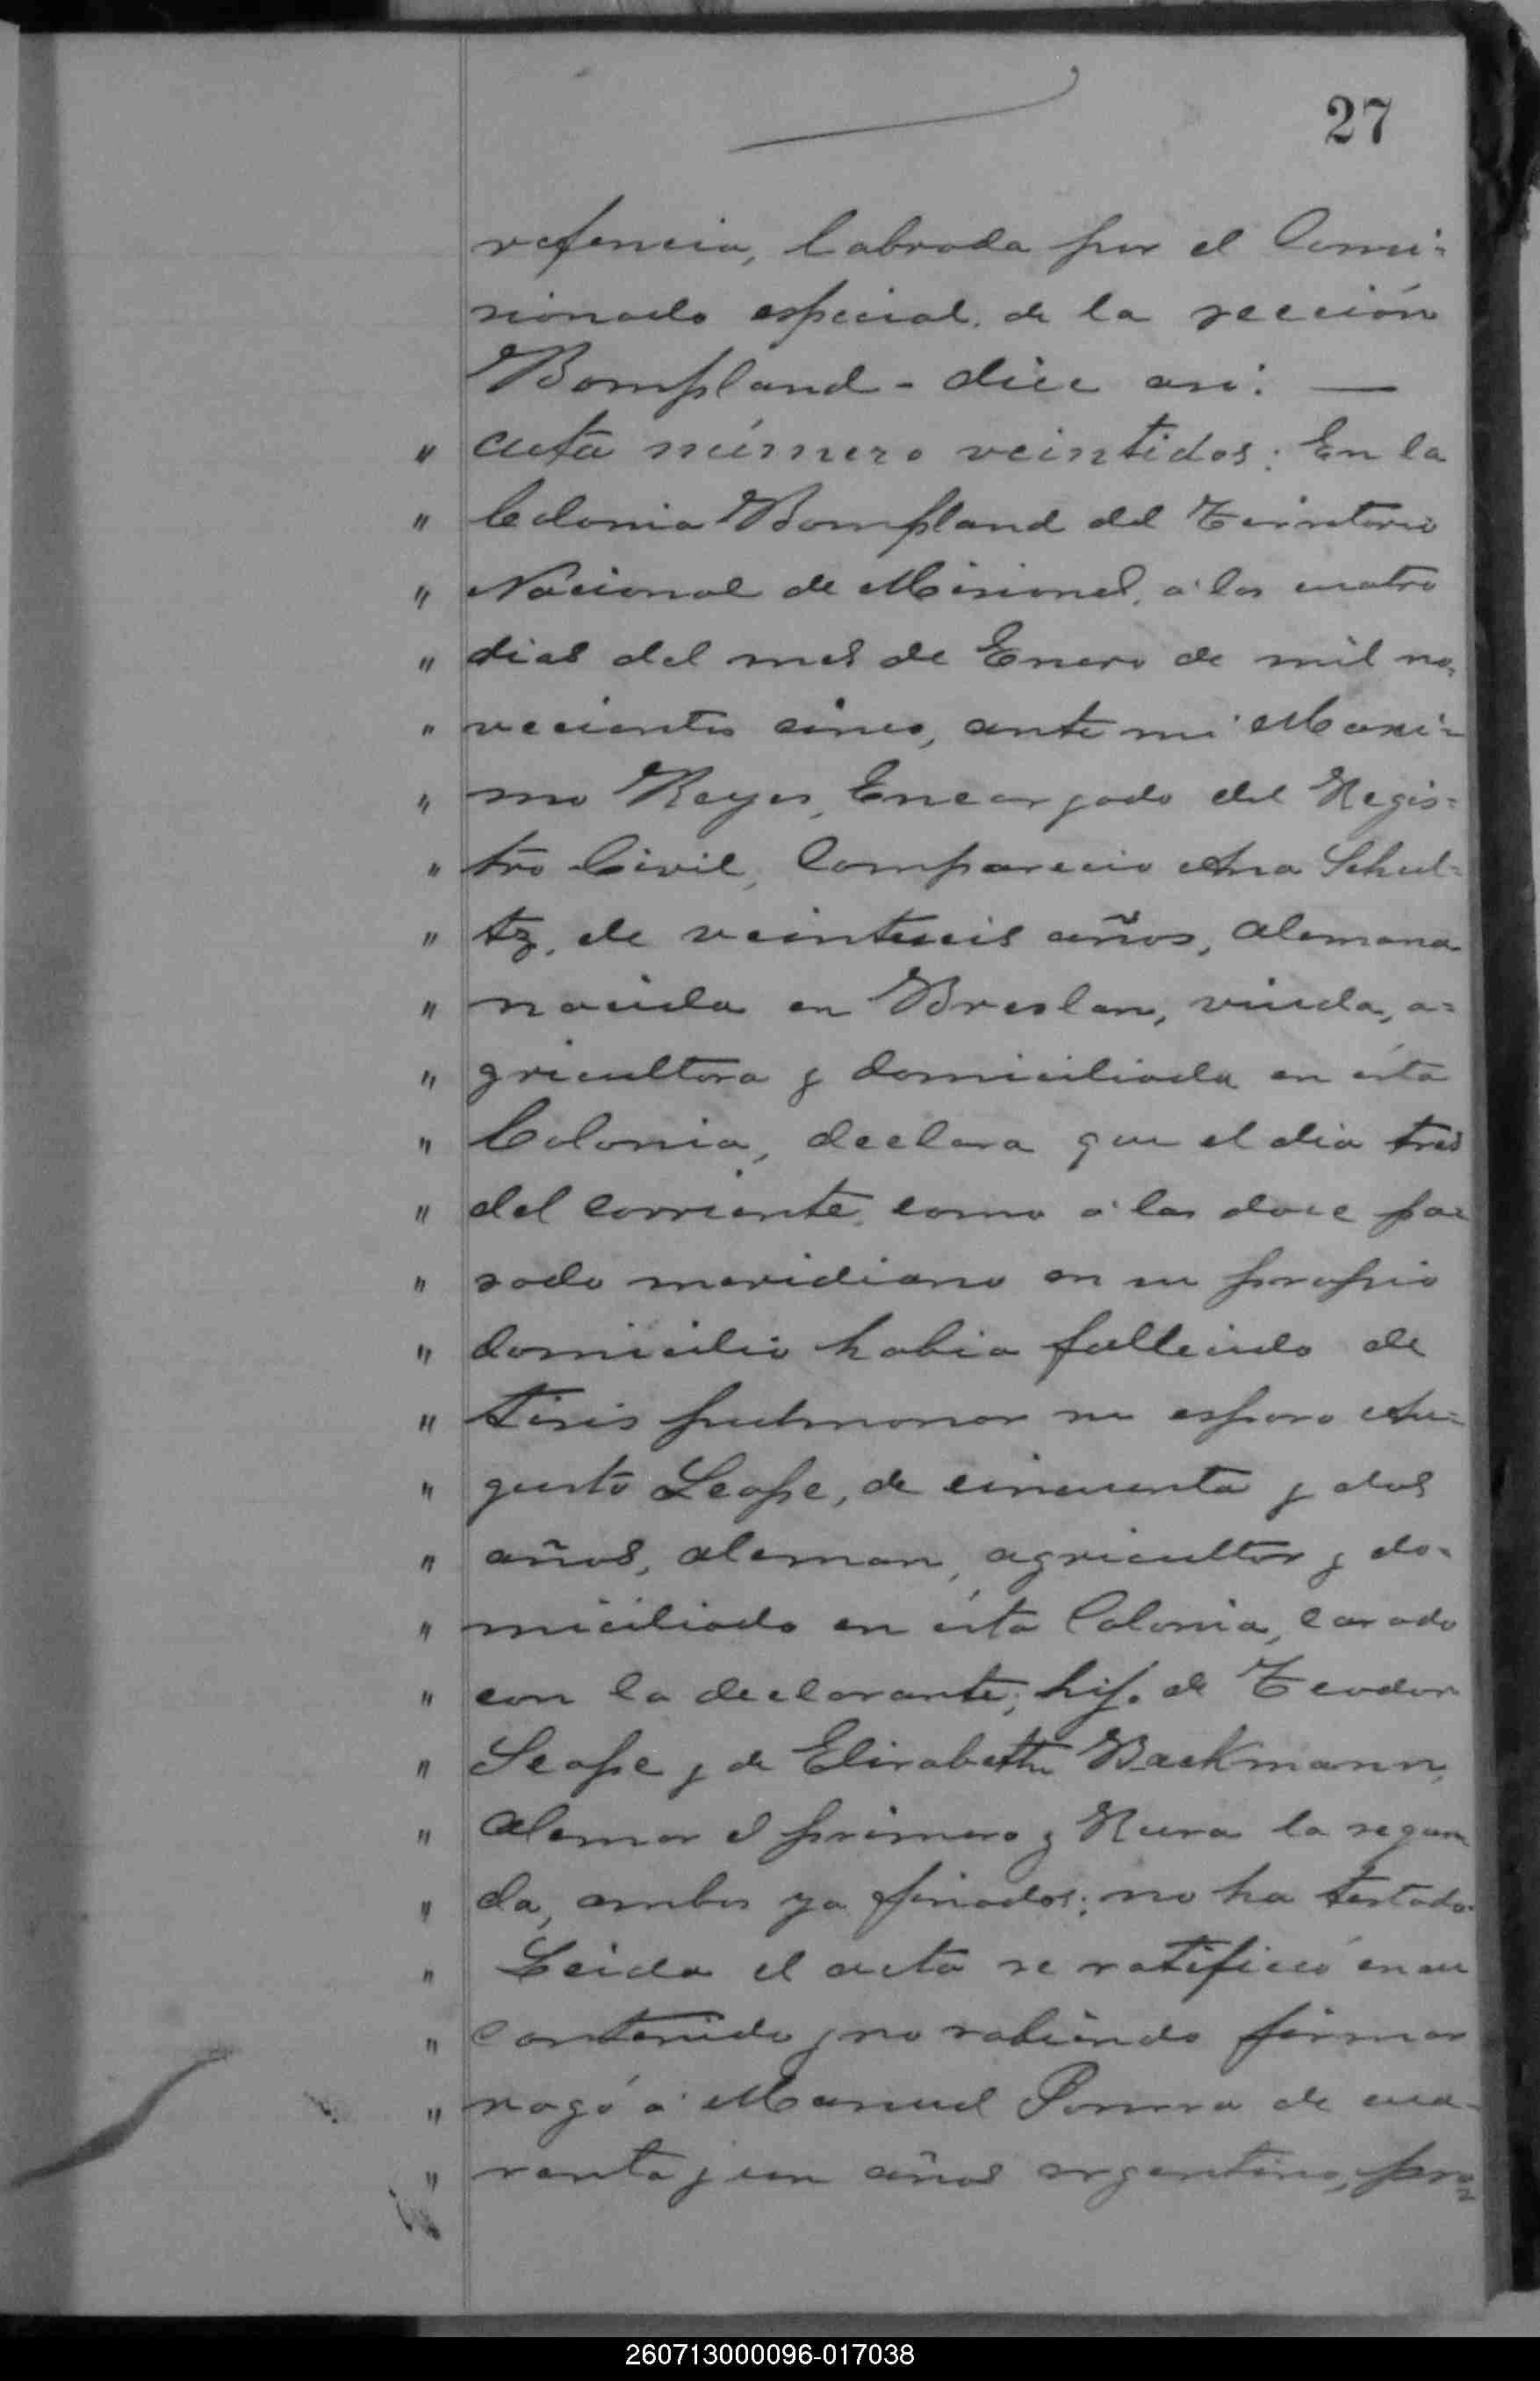 27
refencia, labrada por el Comi=
sionado especial de la sección
Bompland - dice asi: —
" Acta número veintidos: En la
" Colonia Bompland del Territorio
" Nacional de Misiones, á los cuatro
" dias del mes de Enero de mil no-
" vecientos cinco, ante mi Maxi=
" mo Reyes, Encargado del Regis=
" tro Civil, Comparecio Ana Schul=
" tz, de veinteseis años, alemana
" nacida en Breslau, viuda, a=
" gricultora y domiciliada en ésta
" Colonia, declara que el dia tres
" del corriente, como á las doce pa=
" sado meridiano en su propio
" domicilio habia fallecido de
" tisis pulmonar su esposo Au=
" gusto Leope, de cincuenta y dos
" años, aleman, agricultor y do-
" miciliado en ésta Colonia, casado
" con la declarante; hijo de Teodor
" Leope y de Elisabetha Backmann,
" Aleman el primero y Rusa la segun
" da, ambos ya finados; no ha testado.
" Leida el acta se ratificó en su
" contenido y no sabiendo firmar
" rogó a Manuel de cua-
" renta y un años argentino, pro=
260713000096-017038